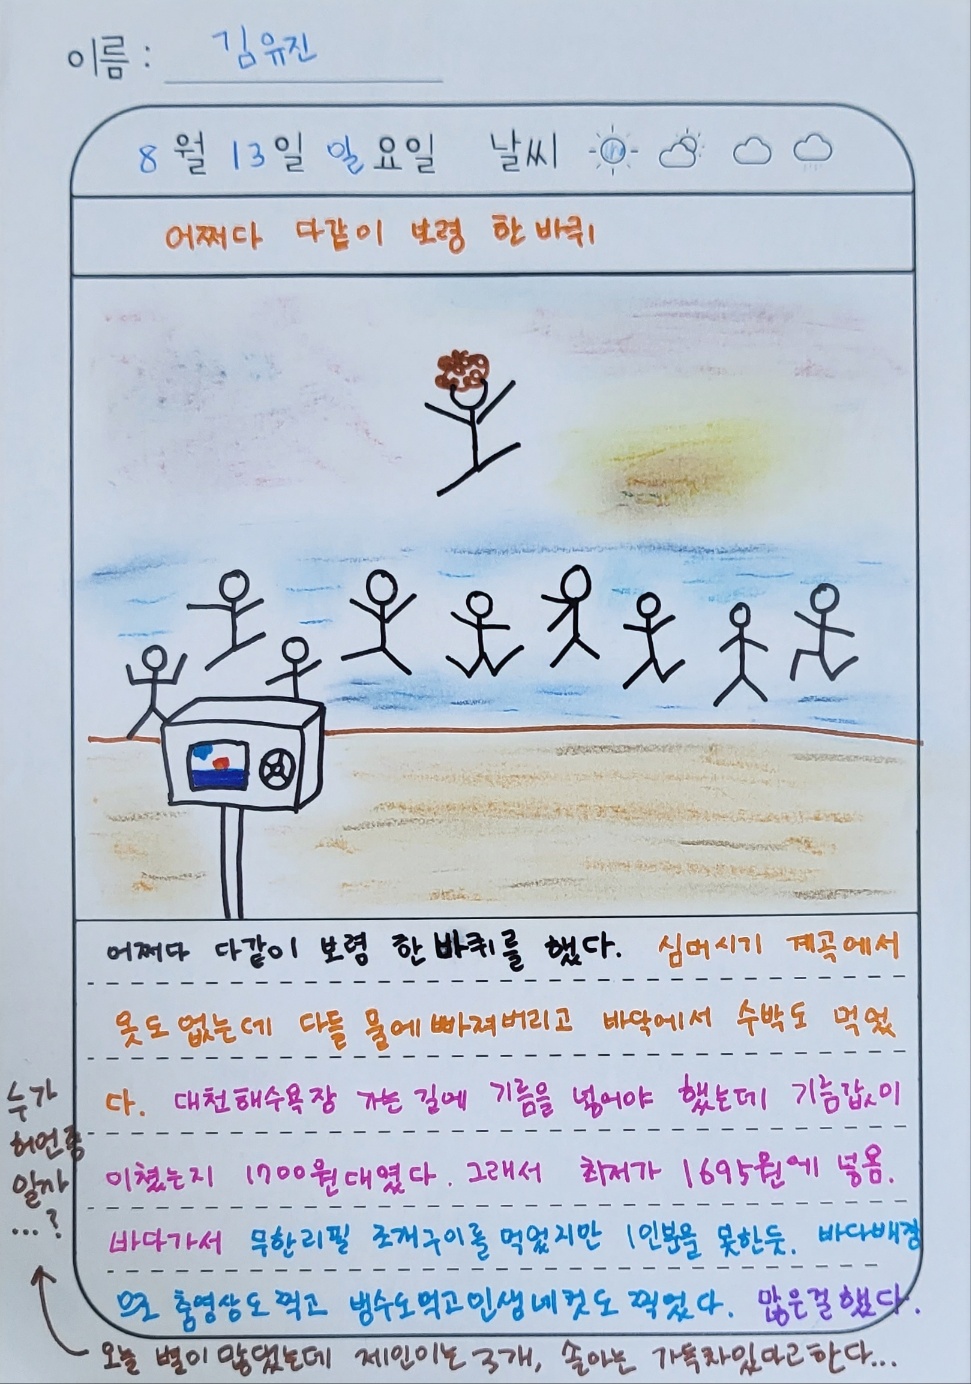 이름 : 김유진
8월 13일 일요일 날씨
어쩌다 다같이 보령 한 바퀴
어쩌다 다같이 보령 한 바퀴를 했다. 심머시기 계곡에서
옷도 없는데 다들 물에 빠져버리고 바닥에서 수박도 먹었
다. 대천해수욕장 가는 길에 기름을 넣어야 했는데 기름값이
미쳤는지 1700원대였다. 그래서 최저가 1695원에 넣음.
바다가서 무한리필 조개구이를 먹었지만 1인분을 못한듯. 바다배경
으로 춤영상도 찍고 냉수도먹고 인생네컷도 찍었다. 많은걸했다.
누가
허언증
일까
...?
오늘 별이 많댔는데 제인이는 3개, 솔아는 가득차있다고한다...